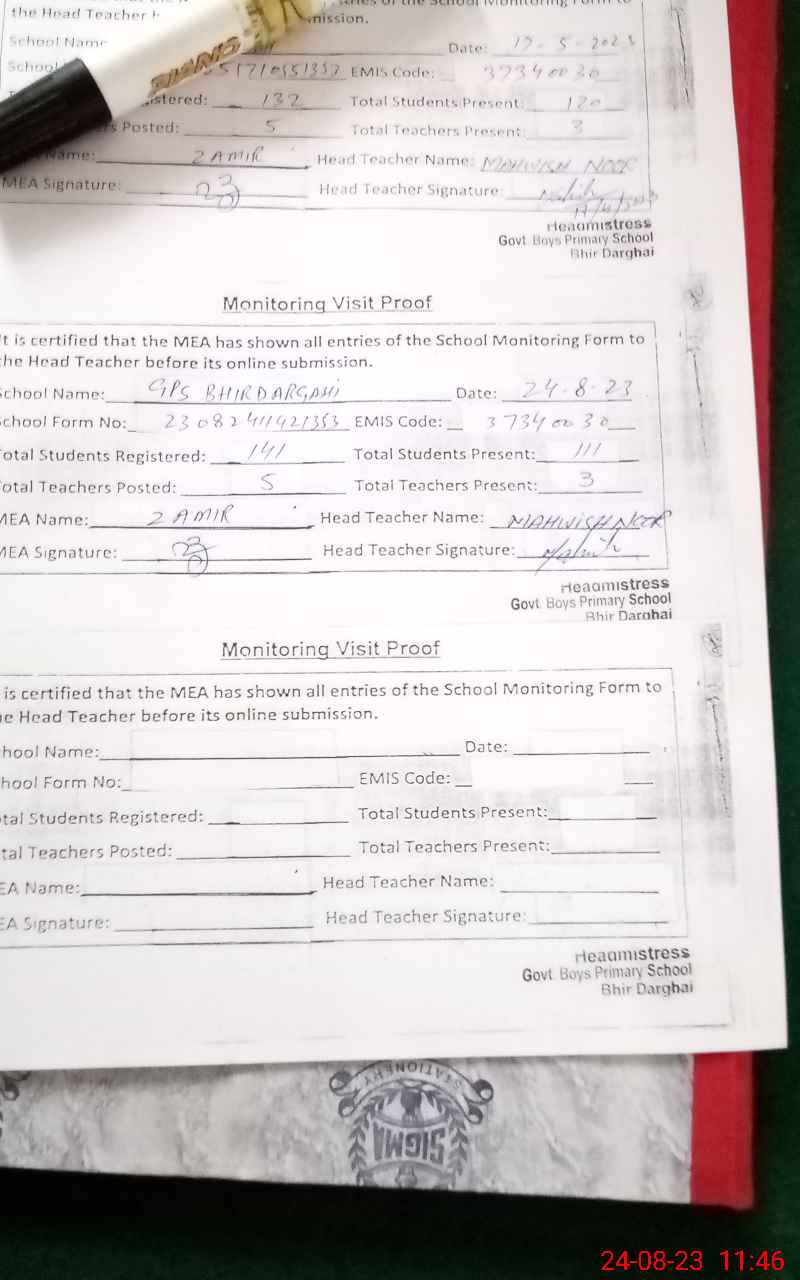 the Head Teacher
mission.
School Name Date: 17-5-2023
School 51710551337 EMIS Code: 37340030
istered: 132 Total Students Present: 120
rs Posted: 5 Total Teachers Present: 3
Name: ZAMIR Head Teacher Name: MAHWISH NOOR
MEA Signature: Head Teacher Signature:
Headmistress
Govt. Boys Primary School
Bhir Darghai
Monitoring Visit Proof
It is certified that the MEA has shown all entries of the School Monitoring Form to
the Head Teacher before its online submission.
School Name: GPS BHIRDARGAHI Date: 24-8-23
School Form No: 23082411421353 EMIS Code: 37340030
Total Students Registered: 141 Total Students Present: 111
Total Teachers Posted: 5 Total Teachers Present: 3
MEA Name: ZAMIR Head Teacher Name: MAHWISH NOOR
MEA Signature: Head Teacher Signature:
Headmistress
Govt. Boys Primary School
Bhir Darghai
Monitoring Visit Proof
is certified that the MEA has shown all entries of the School Monitoring Form to
e Head Teacher before its online submission.
hool Name: Date:
hool Form No: EMIS Code:
tal Students Registered: Total Students Present:
tal Teachers Posted: Total Teachers Present:
EA Name: Head Teacher Name:
EA Signature: Head Teacher Signature:
Headmistress
Govt. Boys Primary School
Bhir Darghai
STATIONERY
SIGMA
24-08-23 11:46